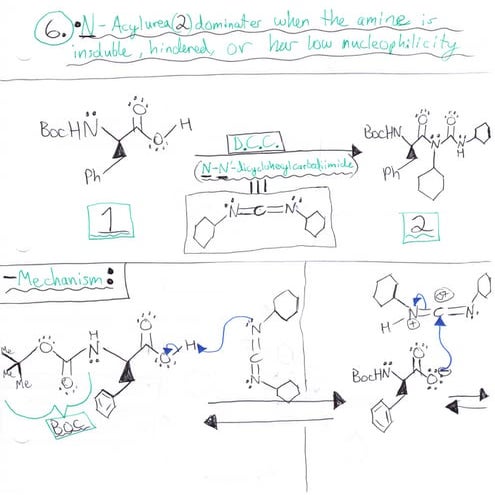 6. • N-Acylurea (2) dominates when the amine is
insoluble, hindered, or has low nucleophilicity
BocHN
O
O
H
Ph
1
D.C.C.
(N-N'-dicyclohexylcarbodiimide)
N=C=N
BocHN
O
O
N
N
H
Ph
2
- Mechanism:
Me
Me
Me
O
O
H
N
O
O
H
BOC
N
C
N
H
N
C
N
δ+
BocHN
O
O